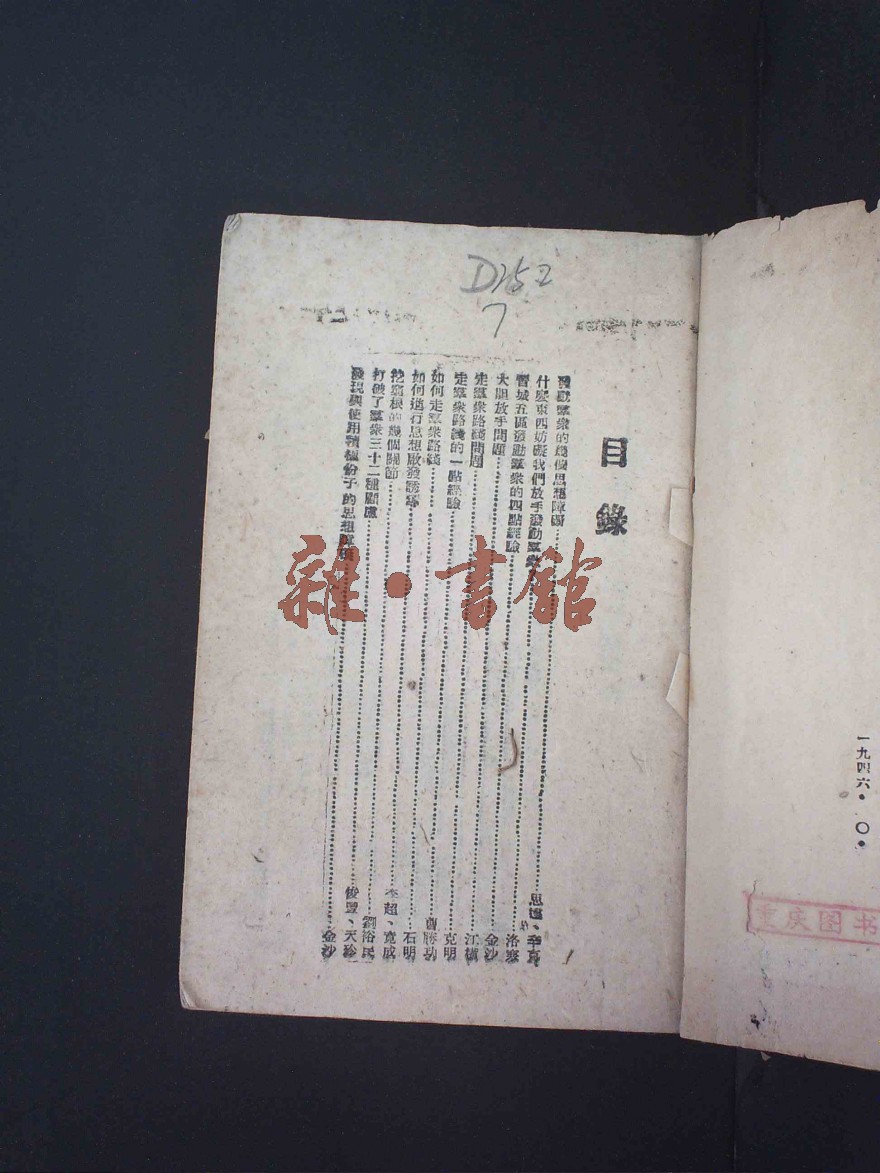 D252
7
目錄
發動羣衆的幾個思想障礙
什麽東西妨礙我們放手發動羣衆……思進、辛克
晋城五區發動羣衆的四點經驗……洛寒
大胆放手問題……金沙
走羣衆路綫問題……江横
走羣衆路綫的一點經驗……克明
如何走羣衆路綫……曹勝功
如何進行思想啟發誘導……石明
挖窮根的幾個關節……李超、寛成
打破了羣衆三十二種顧慮……劉裕民
發現與使用積極份子的思想障礙……俊豐、天珍
金沙
一九四六·〇·
重庆图书
雜·書館